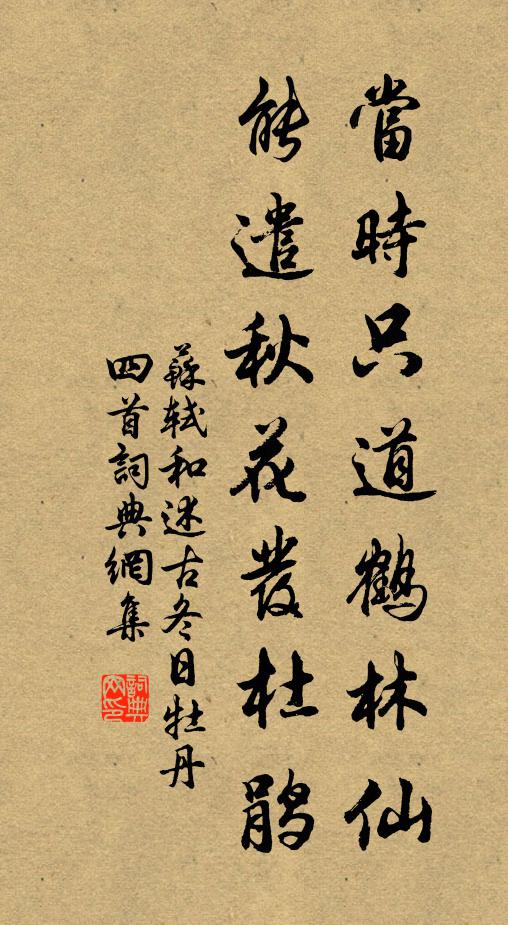 當時只道鶴林仙
能遣秋花發杜鵑
蘇軾和述古冬日牡丹
四首詞典網集
詞典網印